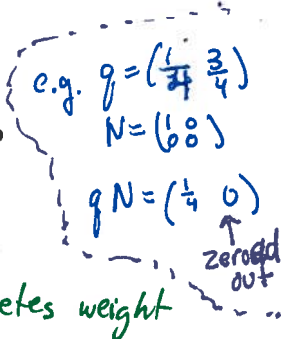 e.g. q = (1/4 3/4)
N = (1 0
0 0)
q N = (1/4 0)
↑
zeroed
out
etes weight